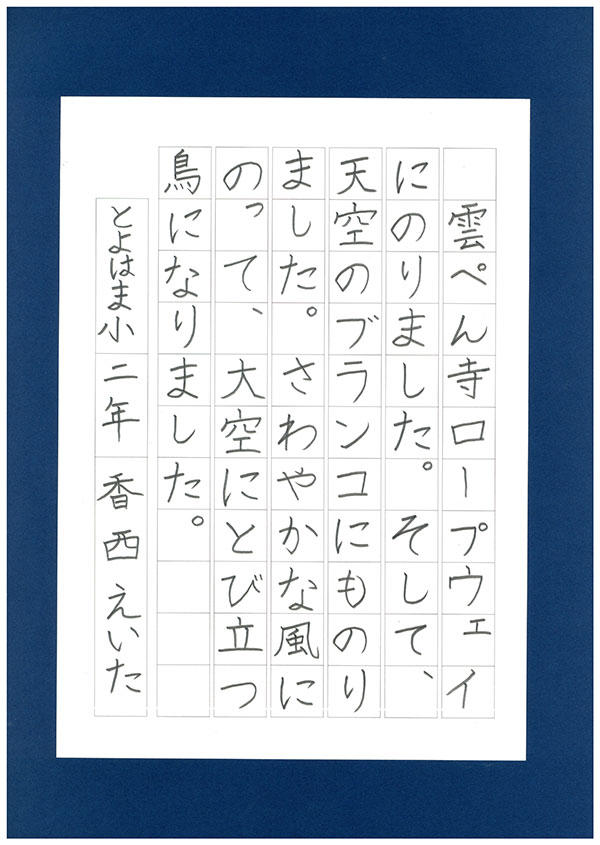 雲ぺん寺ロープウェイ
にのりました。そして、
天空のブランコにものり
ました。さわやかな風に
のって、大空にとび立つ
鳥になりました。
とよはま小 二年 香西えいた